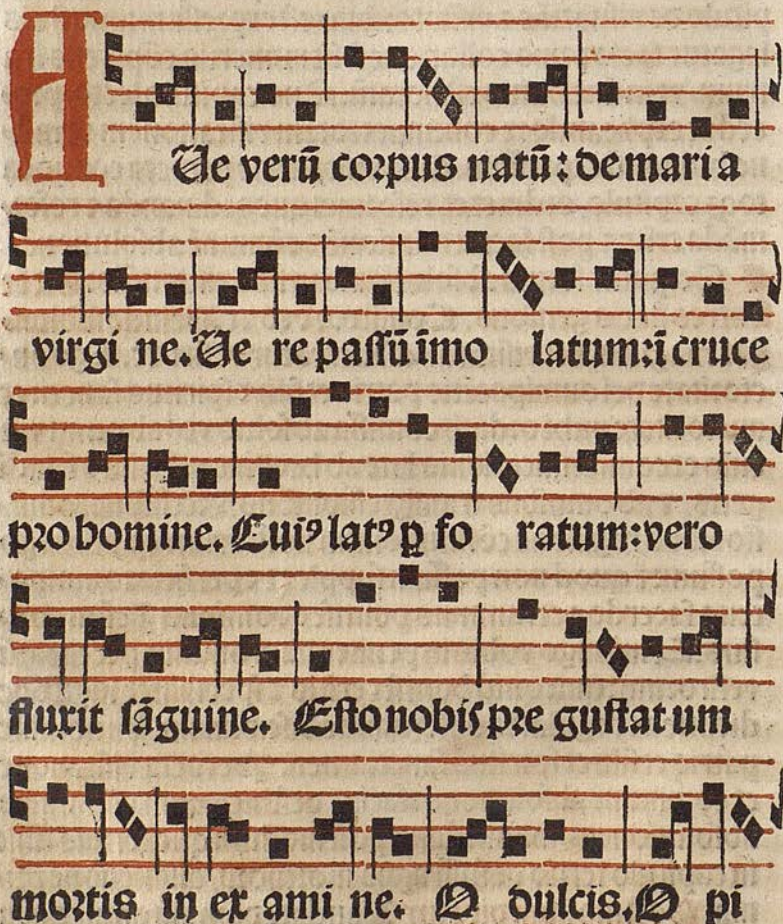 AUe verū corpus natū: de maria
virgine. Ue re passū īmo latum: ī cruce
pro homine. Cuiꝰ latꝰ ꝑ fo ratum: vero
fluxit sāguine. Esto nobis pre gustat um
mortis in ex ami ne. O dulcis. O pi